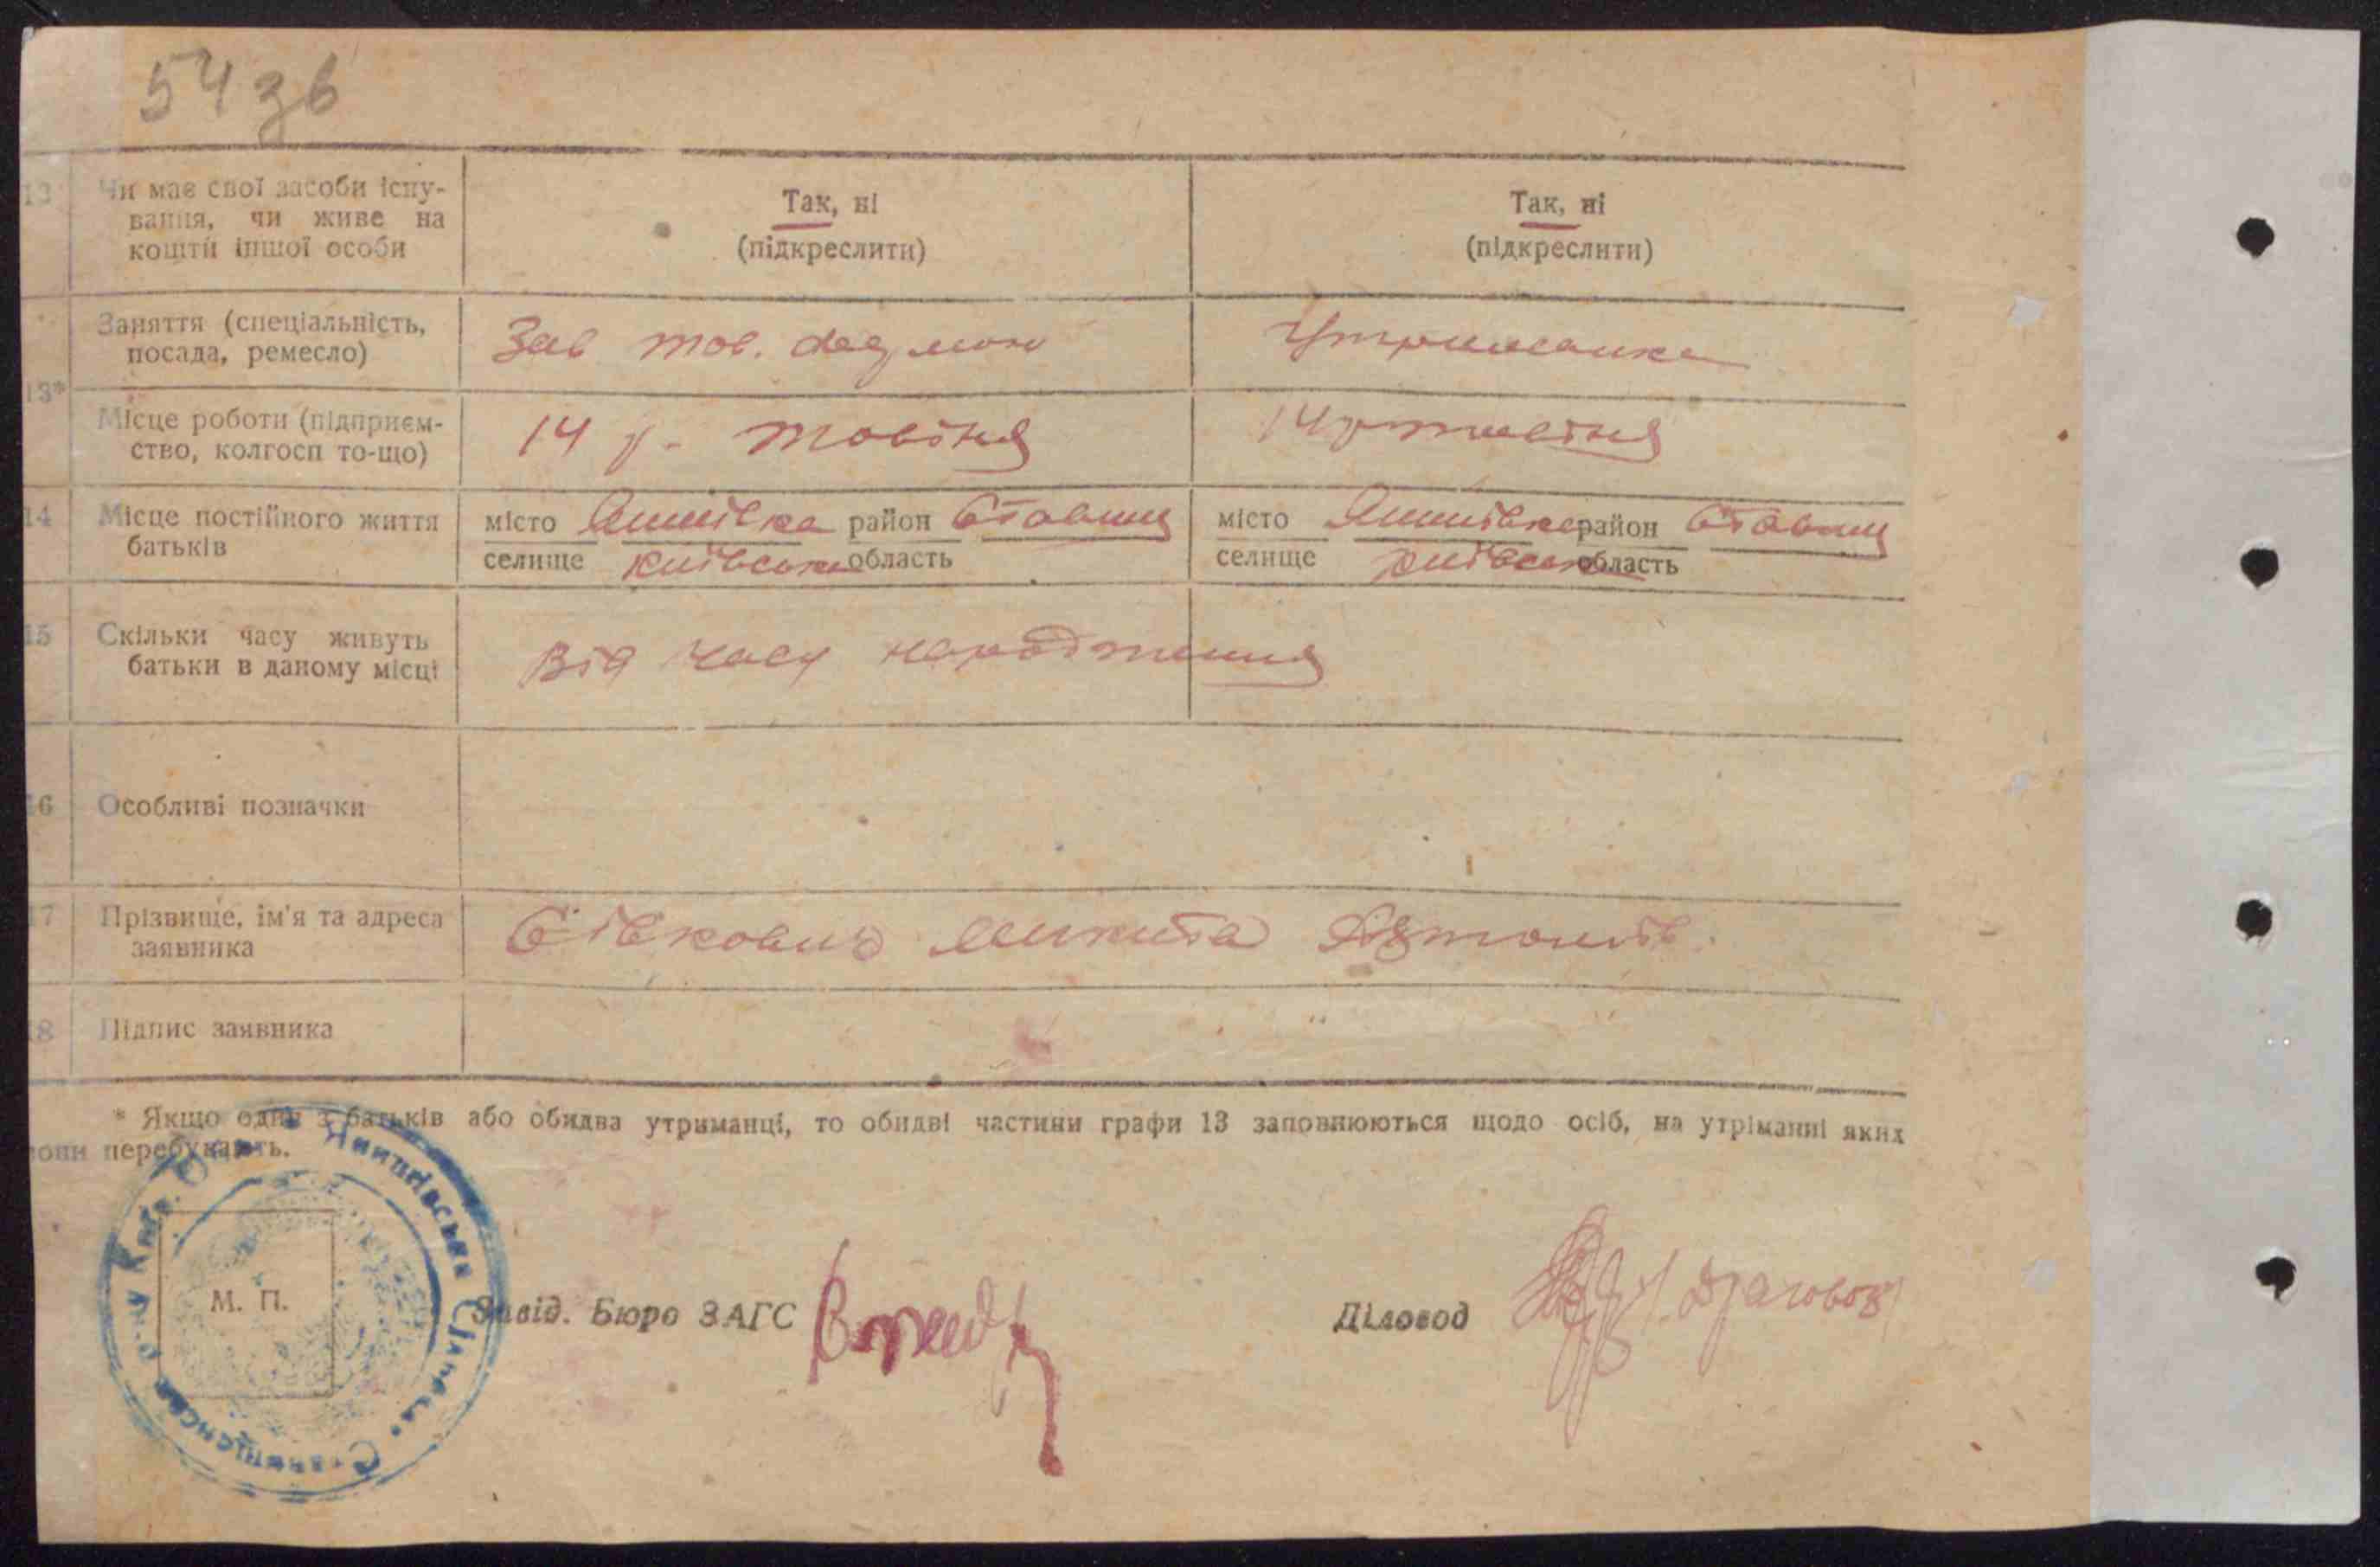 54 зв
13 Чи має свої засоби існу-
вання, чи живе на
кошти іншої особи
Так, ні
(підкреслити)
Так, ні
(підкреслити)
Заняття (спеціальність,
посада, ремесло)
Зав тов.
Утриманка
13*
Місце роботи (підприєм-
ство, колгосп то-що)
14 р.
14 р
14 Місце постійного життя
батьків
місто Янишівка район Ставищ
селище Київська область
місто Янишівка район Ставищ
селище Київська область
15 Скільки часу живуть
батьки в даному місці
Від часу народження
16 Особливі позначки
17 Прізвище, ім'я та адреса
заявника
Сівкович Микита
18 Підпис заявника
* Якщо один з батьків або обидва утриманці, то обидві частини графи 13 заповнюються щодо осіб, на утріманні яких
вони перебувають.
Янишівська Сільрада Ставищенськ р-ну Київ.
М. П.
Завід. Бюро ЗАГС
Діловод